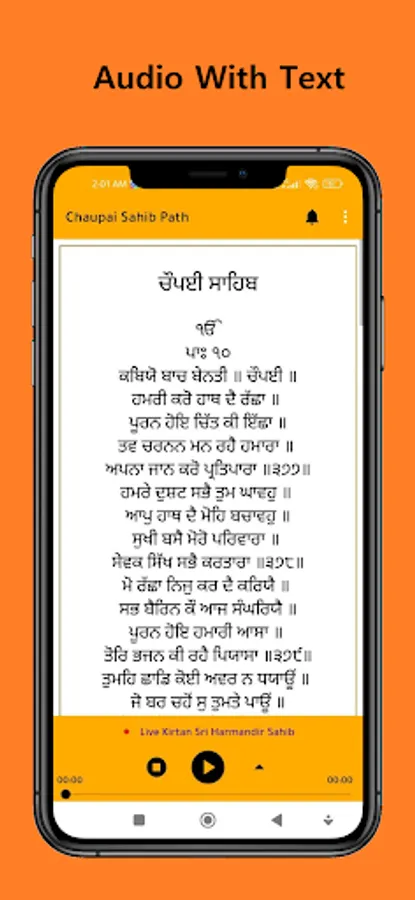 Audio With Text
2:01 AM
Chaupai Sahib Path
ਚੌਪਈ ਸਾਹਿਬ
ੴ
ਪਾਃ ੧੦
ਕਬਿਯੋ ਬਾਚ ਬੇਨਤੀ ॥ ਚੌਪਈ ॥
ਹਮਰੀ ਕਰੋ ਹਾਥ ਦੈ ਰੱਛਾ ॥
ਪੂਰਨ ਹੋਇ ਚਿੱਤ ਕੀ ਇੱਛਾ ॥
ਤਵ ਚਰਨਨ ਮਨ ਰਹੈ ਹਮਾਰਾ ॥
ਅਪਨਾ ਜਾਨ ਕਰੋ ਪ੍ਰਤਿਪਾਰਾ ॥੩੭੭॥
ਹਮਰੇ ਦੁਸ਼ਟ ਸਭੈ ਤੁਮ ਘਾਵਹੁ ॥
ਆਪੁ ਹਾਥ ਦੈ ਮੋਹਿ ਬਚਾਵਹੁ ॥
ਸੁਖੀ ਬਸੈ ਮੋਰੋ ਪਰਿਵਾਰਾ ॥
ਸੇਵਕ ਸਿੱਖ ਸਭੈ ਕਰਤਾਰਾ ॥੩੭੮॥
ਮੋ ਰੱਛਾ ਨਿਜੁ ਕਰ ਦੈ ਕਰਿਯੈ ॥
ਸਭ ਬੈਰਿਨ ਕੌ ਆਜ ਸੰਘਰਿਯੈ ॥
ਪੂਰਨ ਹੋਇ ਹਮਾਰੀ ਆਸਾ ॥
ਤੋਰਿ ਭਜਨ ਕੀ ਰਹੈ ਪਿਯਾਸਾ ॥੩੭੯॥
ਤੁਮਹਿ ਛਾਡਿ ਕੋਈ ਅਵਰ ਨ ਧਯਾਊਂ ॥
ਜੋ ਬਰ ਚਹੋਂ ਸੁ ਤੁਮਤੇ ਪਾਊਂ ॥
Live Kirtan Sri Harmandir Sahib
00:00 00:00